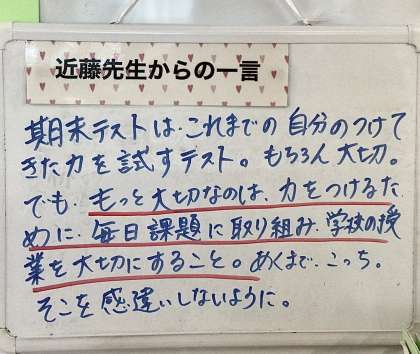 近藤先生からの一言
期末テストは、これまでの自分のつけて
きた力を試すテスト。もちろん大切。
でも、もっと大切なのは、力をつけるた
めに、毎日課題に取り組み、学校の授
業を大切にすること。あくまで、こっち。
そこを感違いしないように。